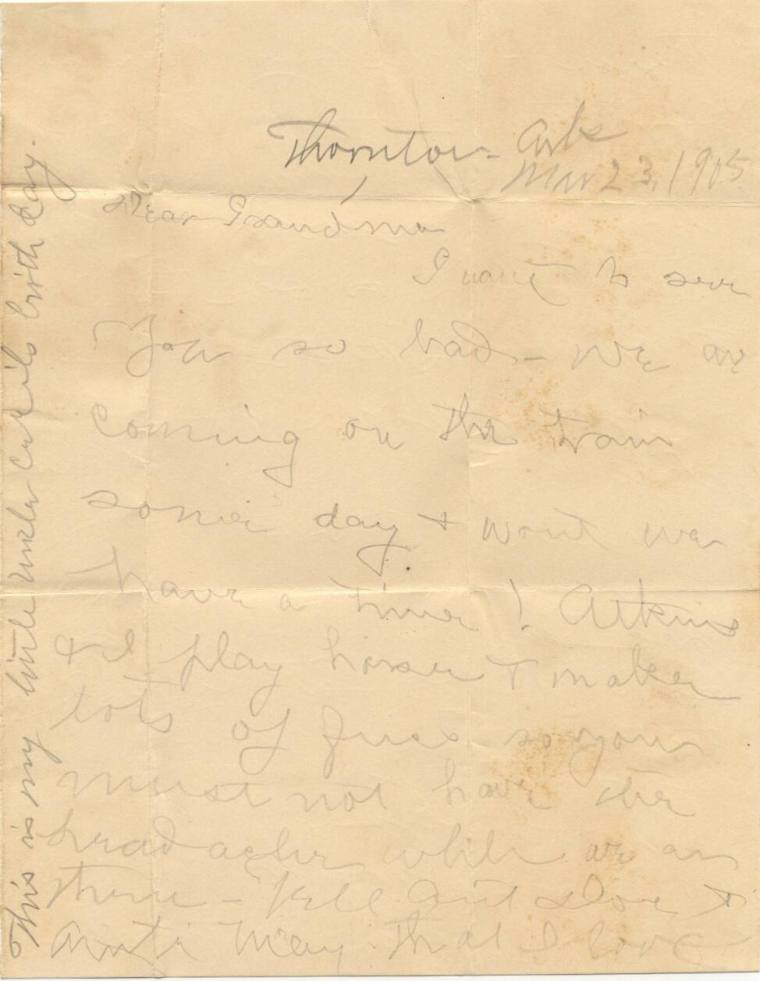 Thornton - Ark
Mar 23, 1905
Dear Grandma
I want to see
You so bad - We are
coming on the train
some day + wont we
have a time! Atkins
+ I play horse + make
lots of fuss so you
must not have the
headache while we are
there - Tell Aunt Dove +
Aunti May that I love
This is my little uncle his birth day.